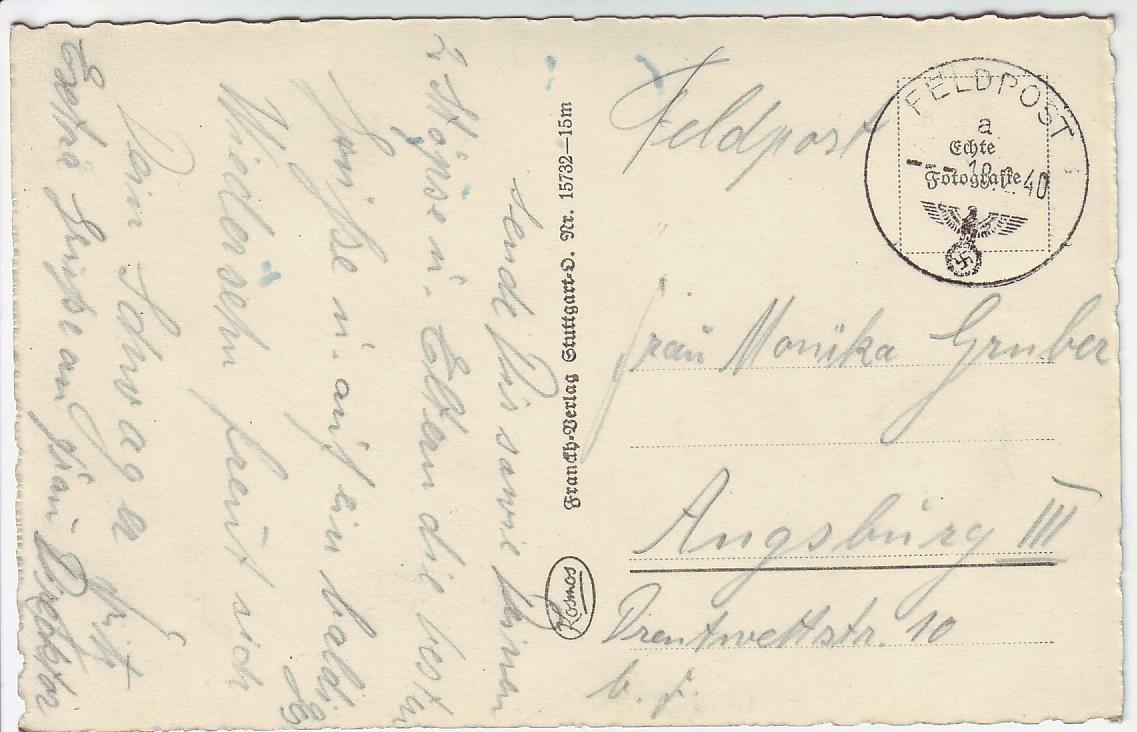 sende Dir sowie Deinen
2 Möpse u. Eltern die besten
Grüße u. auf ein baldiges
Wiedersehn freut sich
Dein Schwager Fritz
Extra Grüße an
Franckh-Verlag Stuttgart-O. Nr. 15732–15m
Kosmos
Feldpost
FELDPOST
a
Echte
Fotografie
40
Frau Monika Gruber
Augsburg III
Drentwettstr. 10